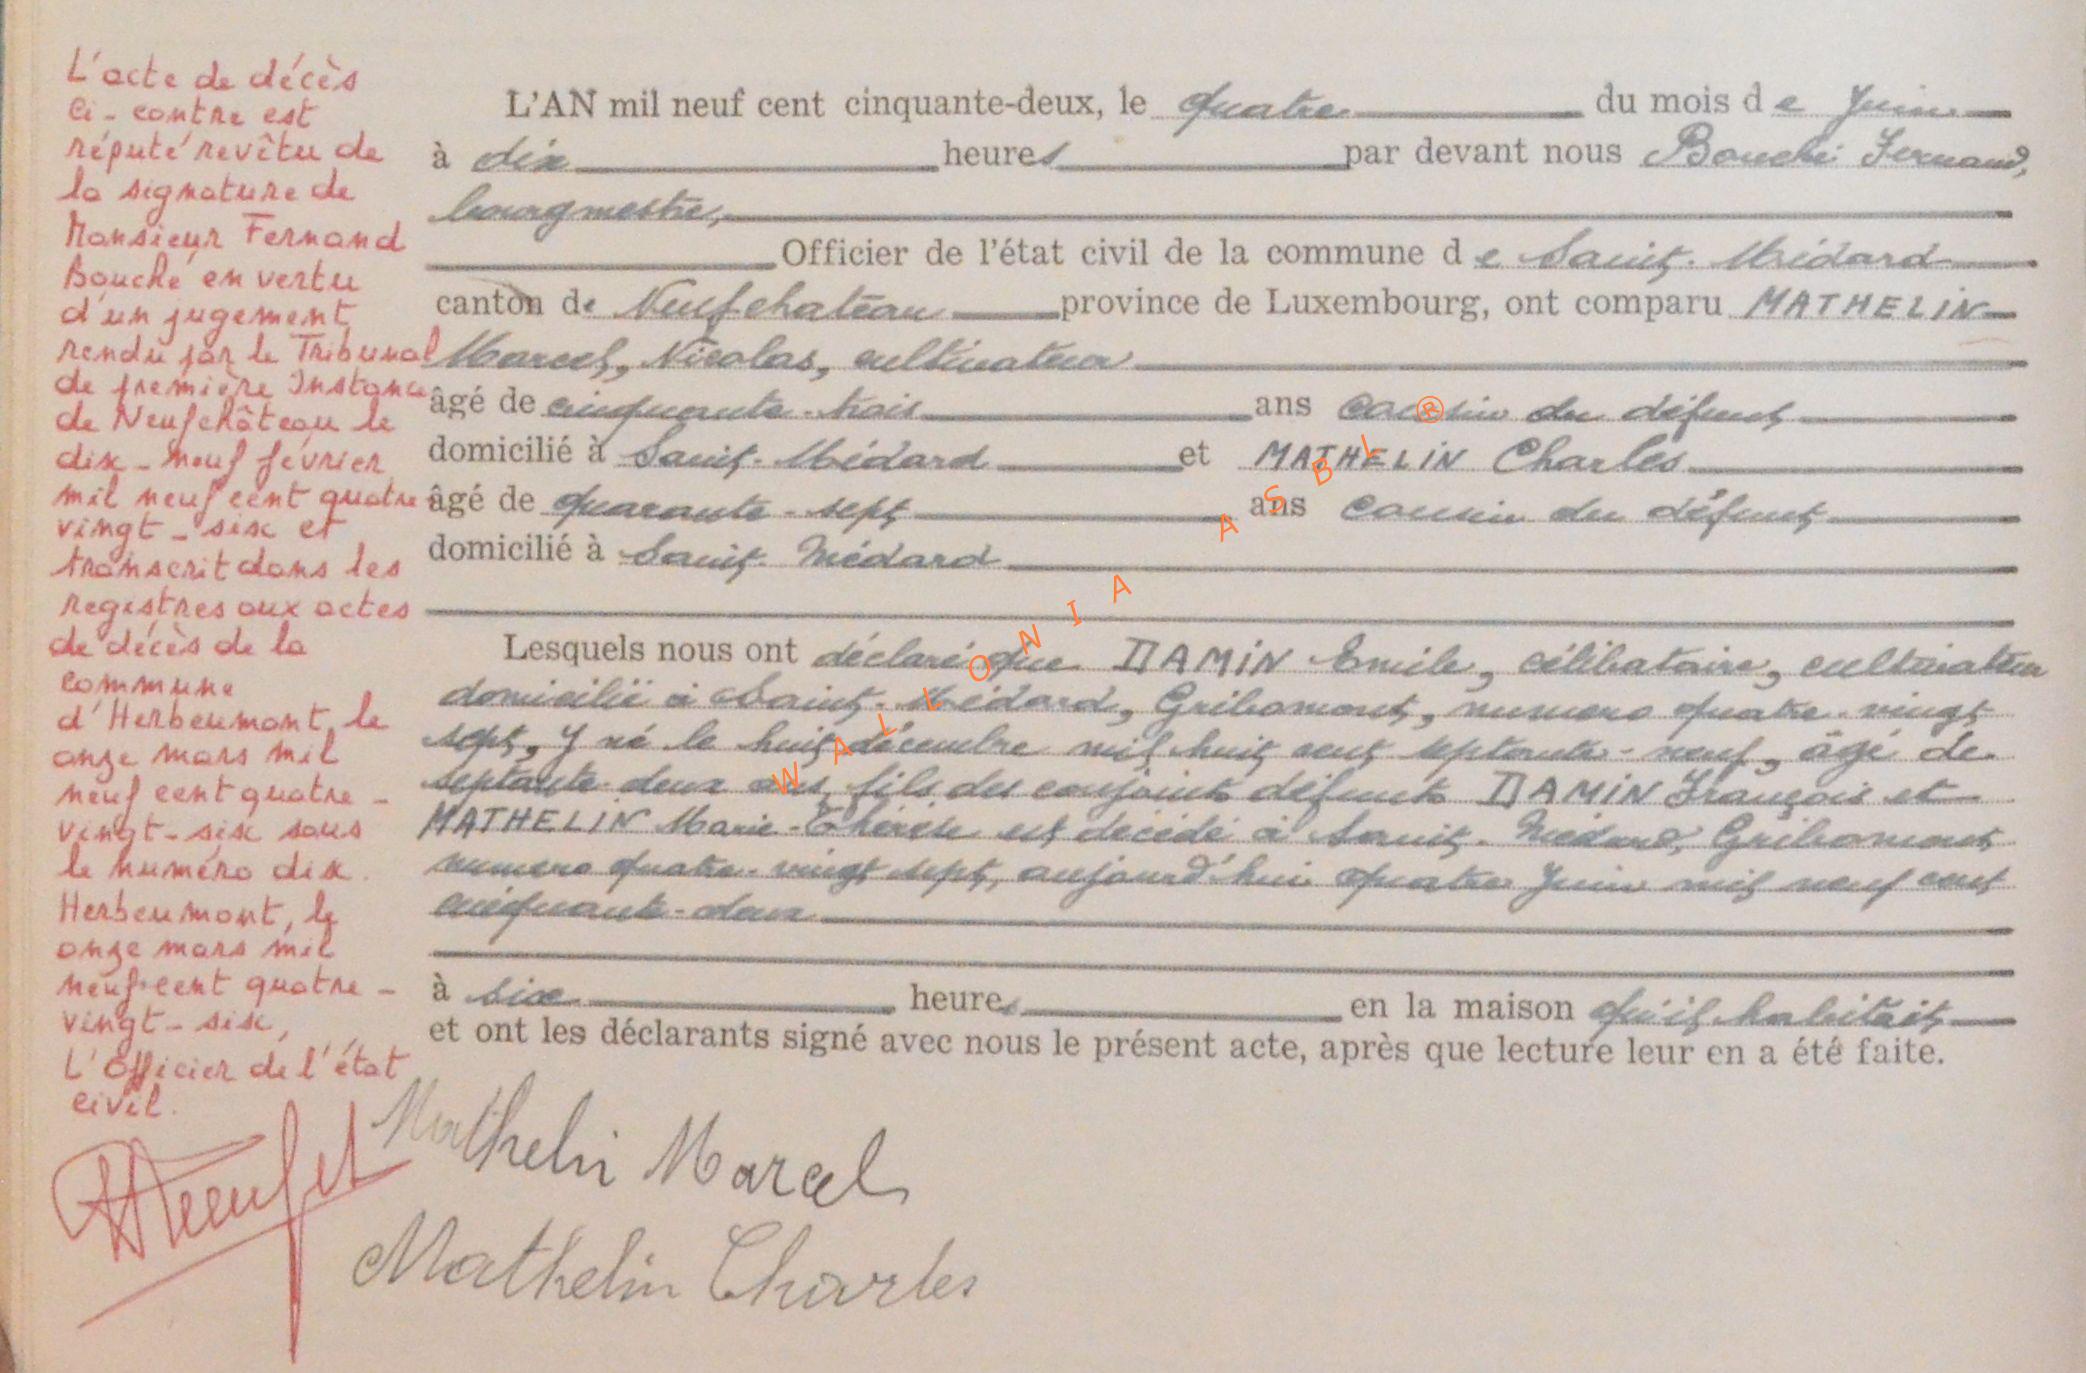 L'acte de décès
ci-contre est
réputé revêtu de
la signature de
Monsieur Fernand
Bouché en vertu
d'un jugement
rendu par le Tribunal
de première Instance
de Neufchâteau le
dix-neuf février
mil neuf cent quatre
vingt-six et
transcrit dans les
registres aux actes
de décès de la
commune
d'Herbeumont, le
onze mars mil
neuf cent quatre-
vingt-six sous
le numéro dix.
Herbeumont, le
onze mars mil
neuf cent quatre-
vingt-six,
L'Officier de l'état
civil.
L'AN mil neuf cent cinquante-deux, le quatre du mois de Juin
à dix heures par devant nous Bouché Fernand,
bourgmestre,
Officier de l'état civil de la commune de Saint-Médard
canton de Neufchateau province de Luxembourg, ont comparu MATHELIN
Marcel, Nicolas, cultivateur
âgé de cinquante-trois ans cousin du défunt
domicilié à Saint-Médard et MATHELIN Charles
âgé de quarante-sept ans cousin du défunt
domicilié à Saint-Médard
Lesquels nous ont déclaré que DAMIN Emile, célibataire, cultivateur
domicilié à Saint-Médard, Gribomont, numero quatre-vingt
sept, y né le huit décembre mil huit cent septante-neuf, âgé de
septante-deux ans, fils des conjoints défunts DAMIN François et
MATHELIN Marie-Thérèse est décédé à Saint-Médard, Gribomont
numero quatre-vingt sept, aujourd'hui quatre Juin mil neuf cent
cinquante-deux
à six heures en la maison qu'il habitait
et ont les déclarants signé avec nous le présent acte, après que lecture leur en a été faite.
Mathelin Marcel
Mathelin Charles
WALLONIA ASBL ®